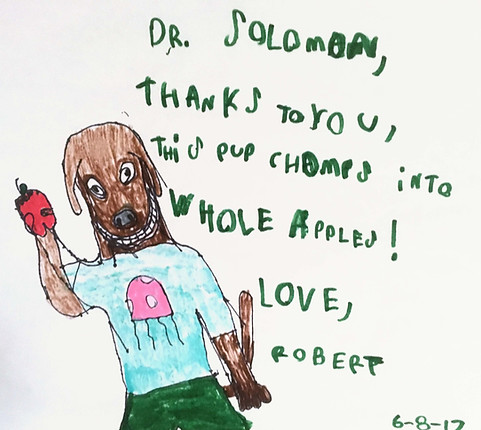 DR. SOLOMON,
THANKS TO YOU,
THIS PUP CHOMPS INTO
WHOLE APPLES!
LOVE,
ROBERT
6-8-17